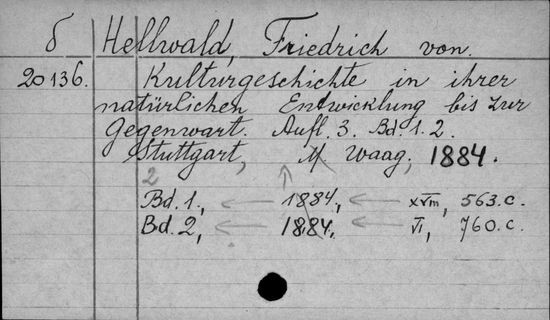 δ Hellwald, Friedrich von.
20136. Kulturgeschichte in ihrer
natürlichen Entwicklung bis zur
Gegenwart. Aufl. 3. Bd. 1. 2.
Stuttgart, W. Waag, 1884.
2
Bd. 1., ← 1884, ← XVIII, 563.c.
Bd. 2, ← 1884, ← VI, 760.c.